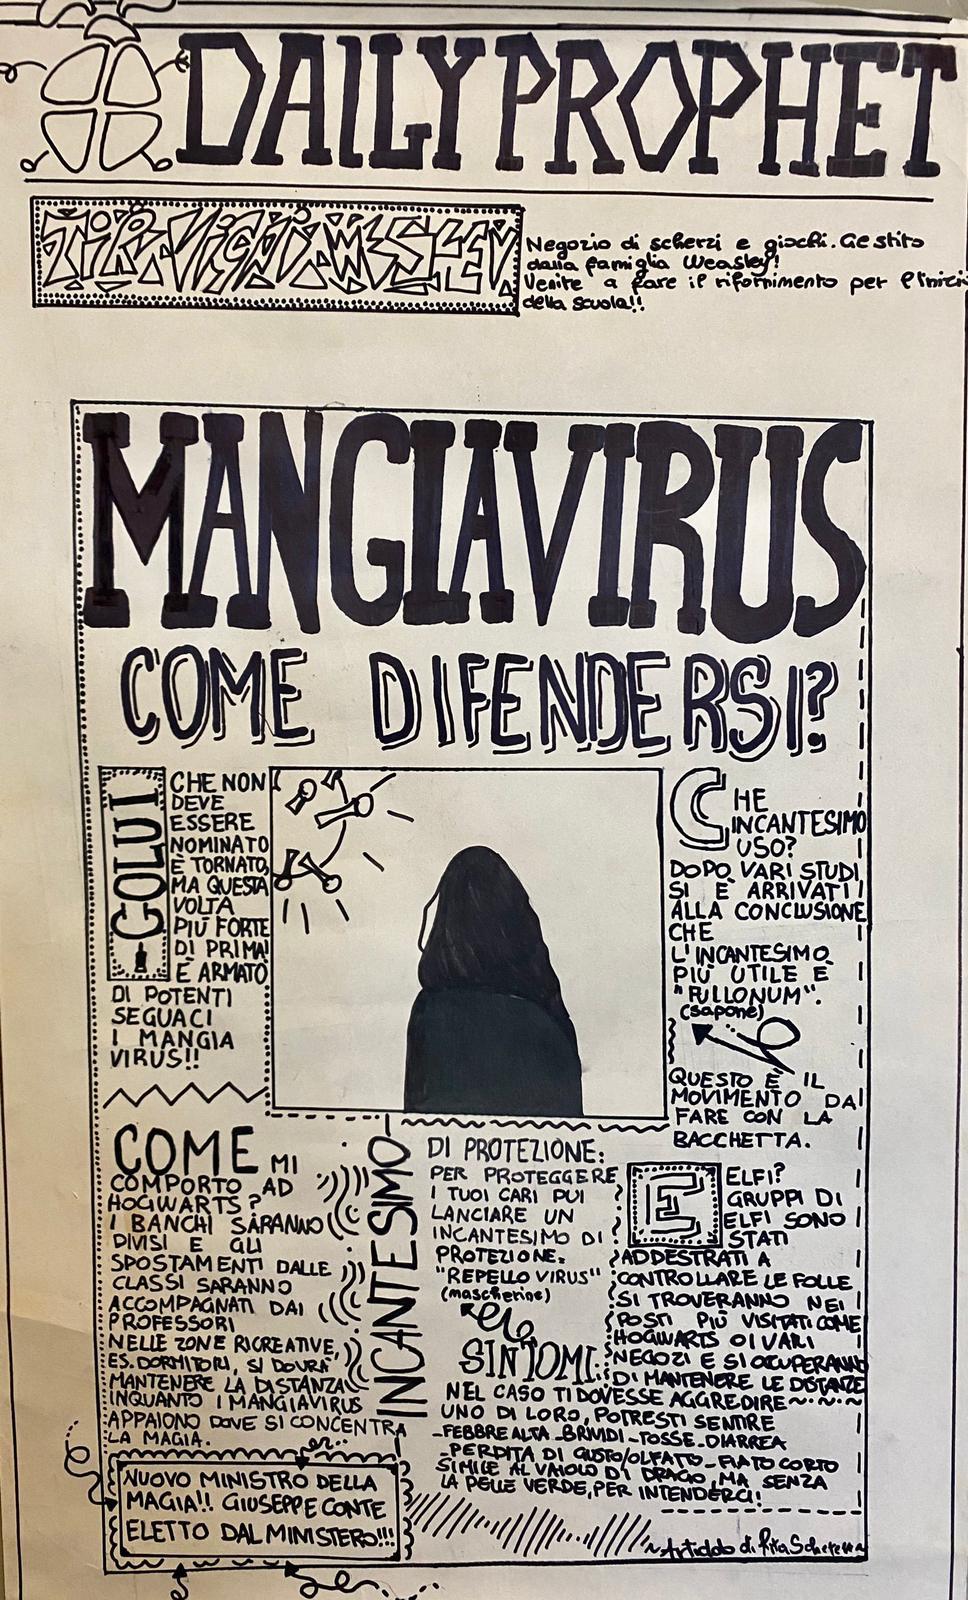 DAILY PROPHET
TIRI VISPI WEASLEY
Negozio di scherzi e giochi. Gestito
dalla famiglia Weasley!
Venite a fare il rifornimento per l'inizi
della scuola!!
MANGIAVIRUS
COME DIFENDERSI?
COLUI
CHE NON
DEVE
ESSERE
NOMINATO
È TORNATO,
MA QUESTA
VOLTA
PIÙ FORTE
DI PRIMA!
È ARMATO
DI POTENTI
SEGUACI
I MANGIA
VIRUS!!
CHE
INCANTESIMO
USO?
DOPO VARI STUDI
SI È ARRIVATI
ALLA CONCLUSIONE
CHE
L'INCANTESIMO
PIÙ UTILE È
"FULLONUM".
(sapone)
QUESTO È IL
MOVIMENTO DA
FARE CON LA
BACCHETTA.
COME MI
COMPORTO AD
HOGWARTS?
I BANCHI SARANNO
DIVISI E GLI
SPOSTAMENTI DALLE
CLASSI SARANNO
ACCOMPAGNATI DAI
PROFESSORI
NELLE ZONE RICREATIVE,
ES. DORMITORI, SI DOVRA'
MANTENERE LA DISTANZA
INQUANTO I MANGIAVIRUS
APPAIONO DOVE SI CONCENTRA
LA MAGIA.
INCANTESIMO
DI PROTEZIONE:
PER PROTEGGERE
I TUOI CARI PUI
LANCIARE UN
INCANTESIMO DI
PROTEZIONE:
"REPELLO VIRUS"
(mascherine)
E
ELFI?
GRUPPI DI
ELFI SONO
STATI
ADDESTRATI A
CONTROLLARE LE FOLLE
SI TROVERANNO NEI
POSTI PIÙ VISITATI COME
HOGWARTS O I VARI
NEGOZI E SI OCCUPERANNO
DI MANTENERE LE DISTANZE
SINTOMI:
NEL CASO TI DOVESSE AGGREDIRE
UNO DI LORO, POTRESTI SENTIRE
-FEBBRE ALTA-BRIVIDI-TOSSE-DIARREA
-PERDITA DI GUSTO/OLFATTO-FIATO CORTO
SIMILE AL VAIOLO DI DRAGO, MA SENZA
LA PELLE VERDE, PER INTENDERCI!
NUOVO MINISTRO DELLA
MAGIA!! GIUSEPPE CONTE
ELETTO DAL MINISTERO!!!
~Articolo di Rita